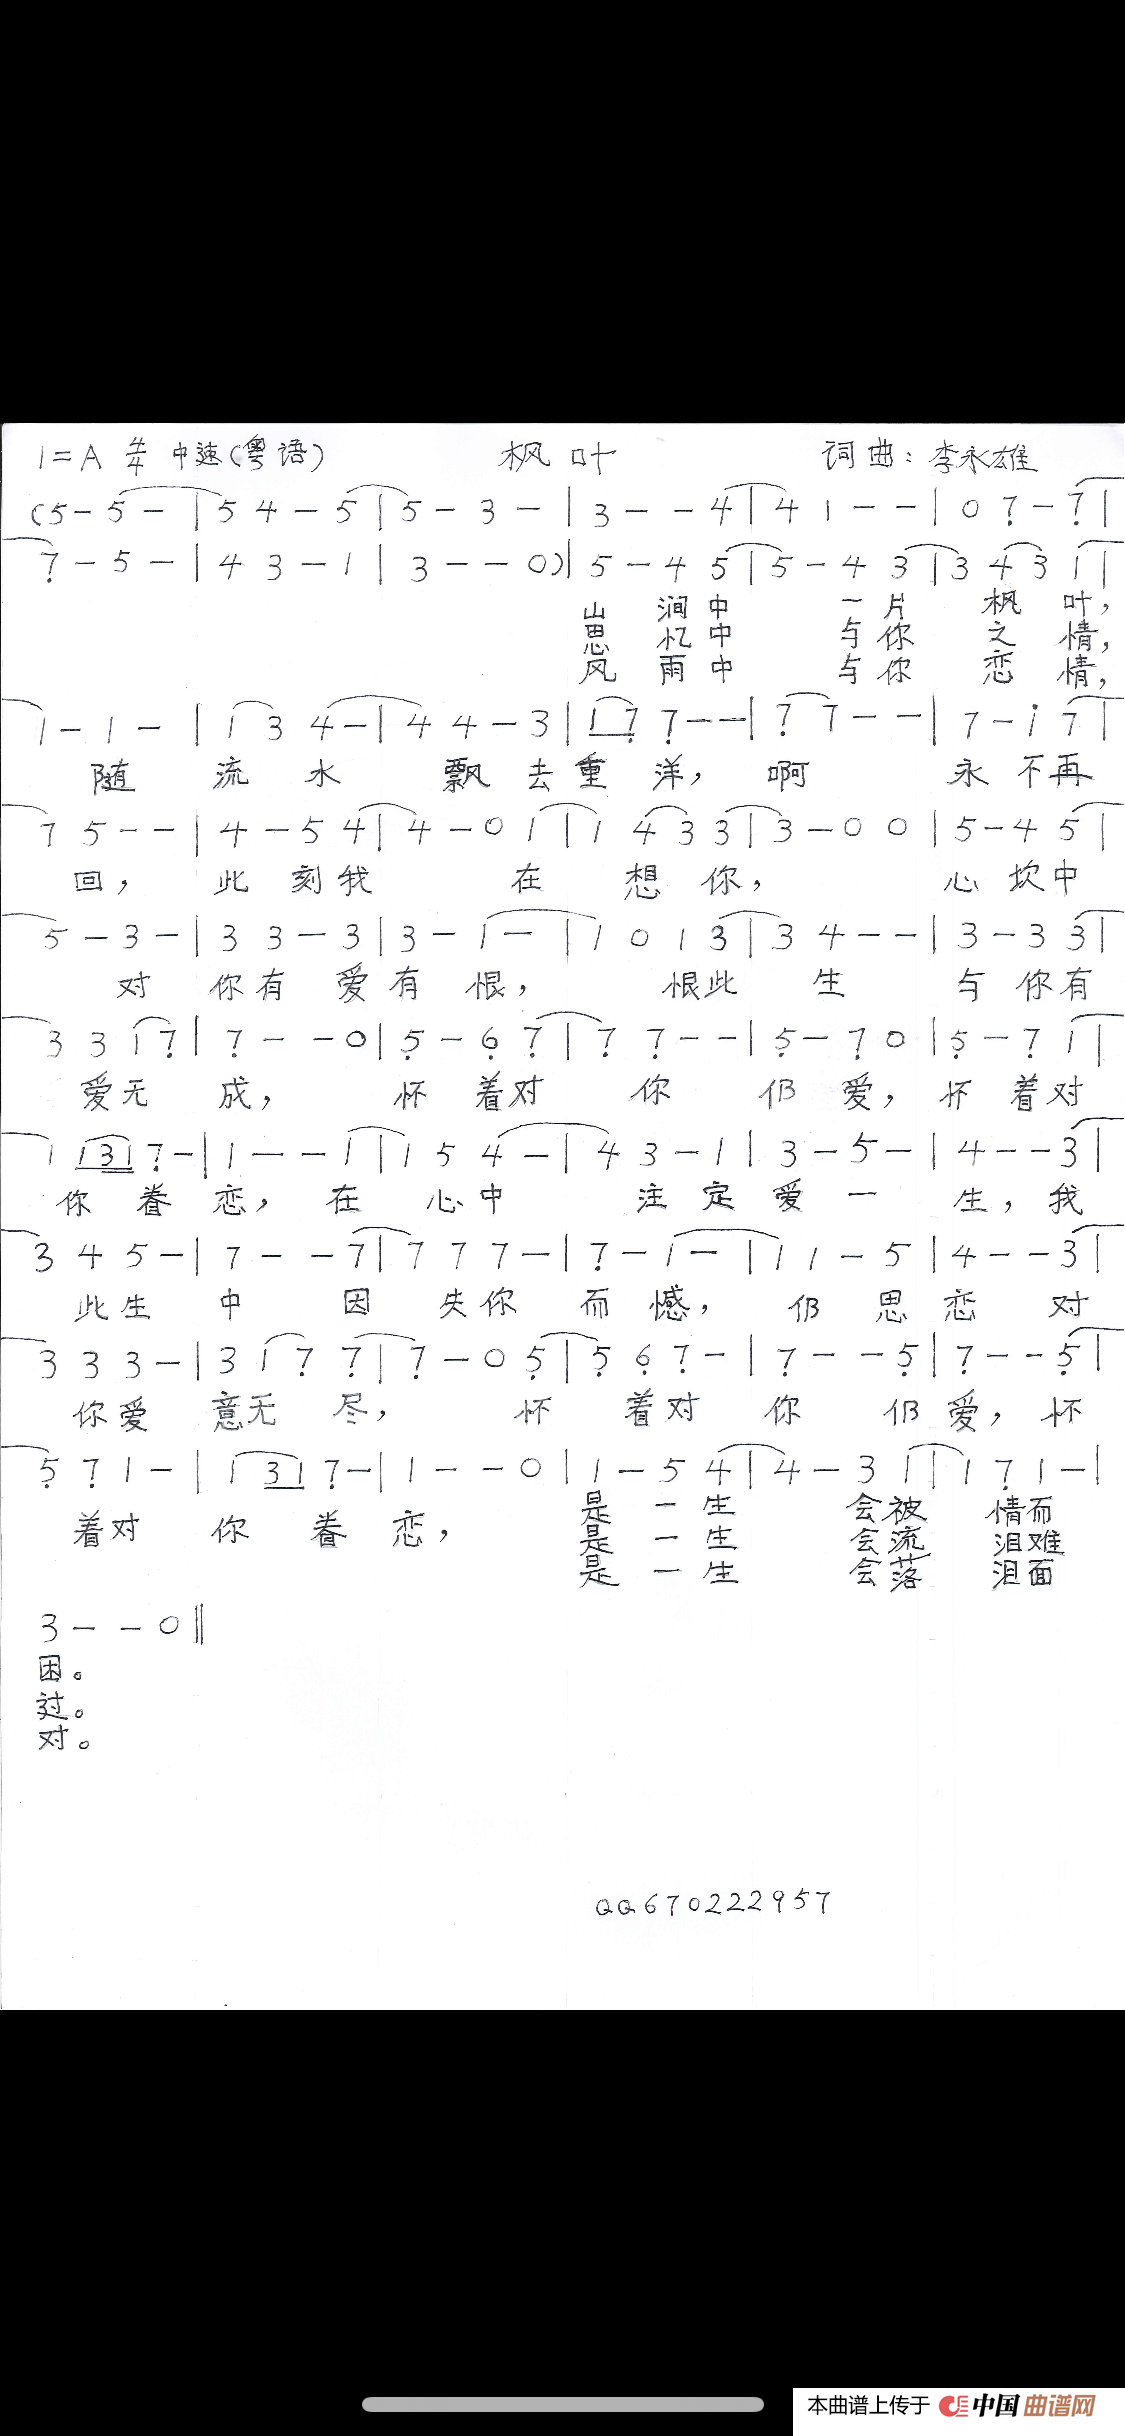 1=A 4/4 中速(粤语) 枫叶 词曲:李永雄
(5 - 5 - | 5 4 - 5 | 5 - 3 - | 3 - - 4 | 4 1 - - | 0 7̣ - 7̣ |
7̣ - 5 - | 4 3 - 1 | 3 - - 0)| 5 - 4 5 | 5 - 4 3 | 3 4 3 1 |
山 涧 中 一 片 枫 叶,
思 忆 中 与 你 之 情,
风 雨 中 与 你 恋 情,
1 - 1 - | 1 3 4 - | 4 4 - 3 | 1 7̣ 7̣ - - | 7̣ 7 - - | 7 - i 7 |
随 流 水 飘 去 重 洋, 啊 永 不 再
7 5 - - | 4 - 5 4 | 4 - 0 1 | 1 4 3 3 | 3 - 0 0 | 5 - 4 5 |
回, 此 刻 我 在 想 你, 心 坎 中
5 - 3 - | 3 3 - 3 | 3 - 1 - | 1 0 1 3 | 3 4 - - | 3 - 3 3 |
对 你 有 爱 有 恨, 恨 此 生 与 你 有
3 3 1 7̣ | 7̣ - - 0 | 5̣ - 6̣ 7̣ | 7̣ 7̣ - - | 5̣ - 7̣ 0 | 5̣ - 7̣ 1 |
爱 无 成, 怀 着 对 你 仍 爱, 怀 着 对
1 1 3 1 7̣ - | 1 - - 1 | 1 5 4 - | 4 3 - 1 | 3 - 5 - | 4 - - 3 |
你 眷 恋, 在 心 中 注 定 爱 一 生, 我
3 4 5 - | 7 - - 7 | 7 7 7 - | 7̣ - 1 - | 1 1 - 5 | 4 - - 3 |
此 生 中 因 失 你 而 憾, 仍 思 恋 对
3 3 3 - | 3 1 7̣ 7̣ | 7̣ - 0 5̣ | 5̣ 6̣ 7̣ - | 7̣ - - 5̣ | 7̣ - - 5̣ |
你 爱 意 无 尽, 怀 着 对 你 仍 爱, 怀
5̣ 7̣ 1 - | 1 3 1 7̣ - | 1 - - 0 | 1 - 5 4 | 4 - 3 1 | 1 7̣ 1 - |
是 一 生 会 被 情 而
着 对 你 眷 恋, 是 一 生 会 流 泪 难
是 一 生 会 落 泪 面
3 - - 0 ‖
困。
过。
对。
QQ670222957
本曲谱上传于 中国曲谱网